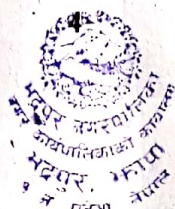 4
भद्रपुर नगरपालिका
नगर कार्यपालिकाको कार्यालय
भद्रपुर, झापा
नेपाल